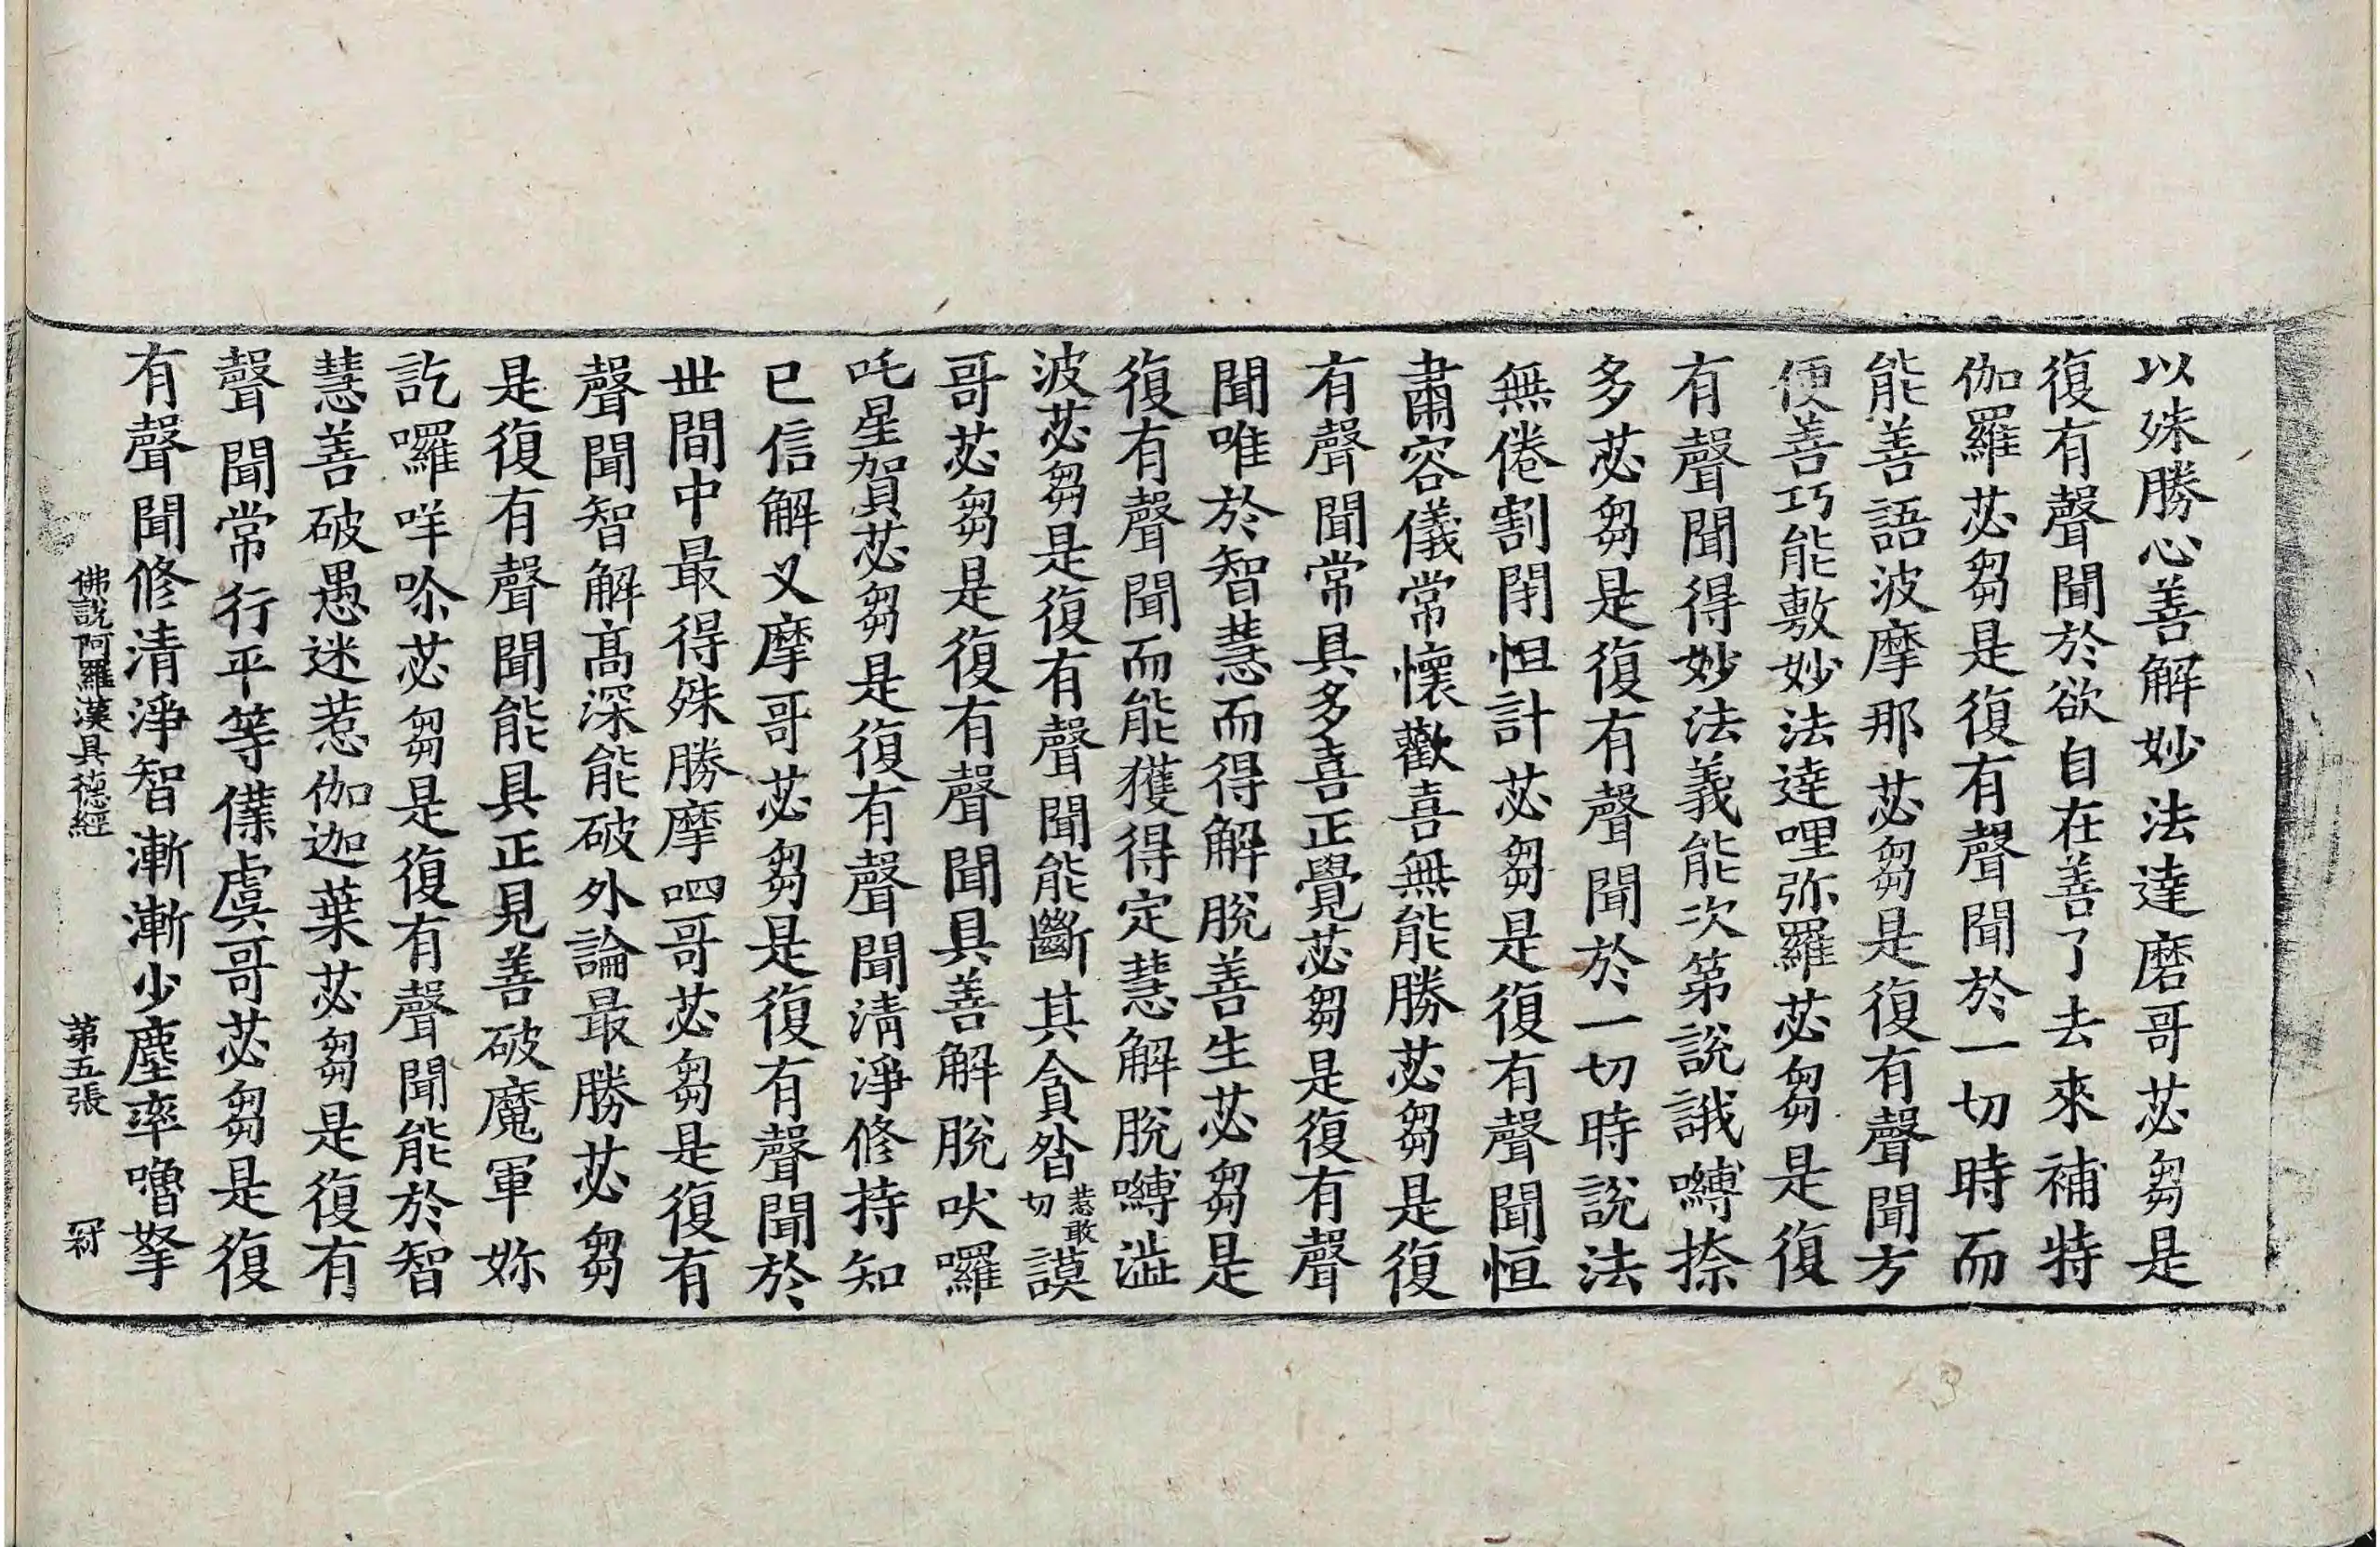 以殊勝心善解妙法達磨哥苾芻是
復有聲聞於欲自在善了去來補特
伽羅苾芻是復有聲聞於一切時而
能善語波摩那苾芻是復有聲聞方
便善巧能敷妙法達哩弥羅苾芻是復
有聲聞得妙法義能次第說誐嚩捺
多苾芻是復有聲聞於一切時說法
無倦割閉怛計苾芻是復有聲聞恒
肅容儀常懷歡喜無能勝苾芻是復
有聲聞常具多喜正覺苾芻是復有聲
聞唯於智慧而得解脫善生苾芻是
復有聲聞而能獲得定慧解脫嚩澁
波苾芻是復有聲聞能斷其貪昝惹敢切謨
哥苾芻是復有聲聞具善解脫吠囉
吒星賀苾芻是復有聲聞清淨修持知
已信解乂摩哥苾芻是復有聲聞於
世間中最得殊勝摩呬哥苾芻是復有
聲聞智解髙深能破外論最勝苾芻
是復有聲聞能具正見善破魔軍妳
訖囉咩吤苾芻是復有聲聞能於智
慧善破愚迷惹伽迦葉苾芻是復有
聲聞常行平等㒒虞哥苾芻是復
有聲聞修清淨智漸漸少塵率嚕拏
佛說阿羅漢具德經 第五張 冠